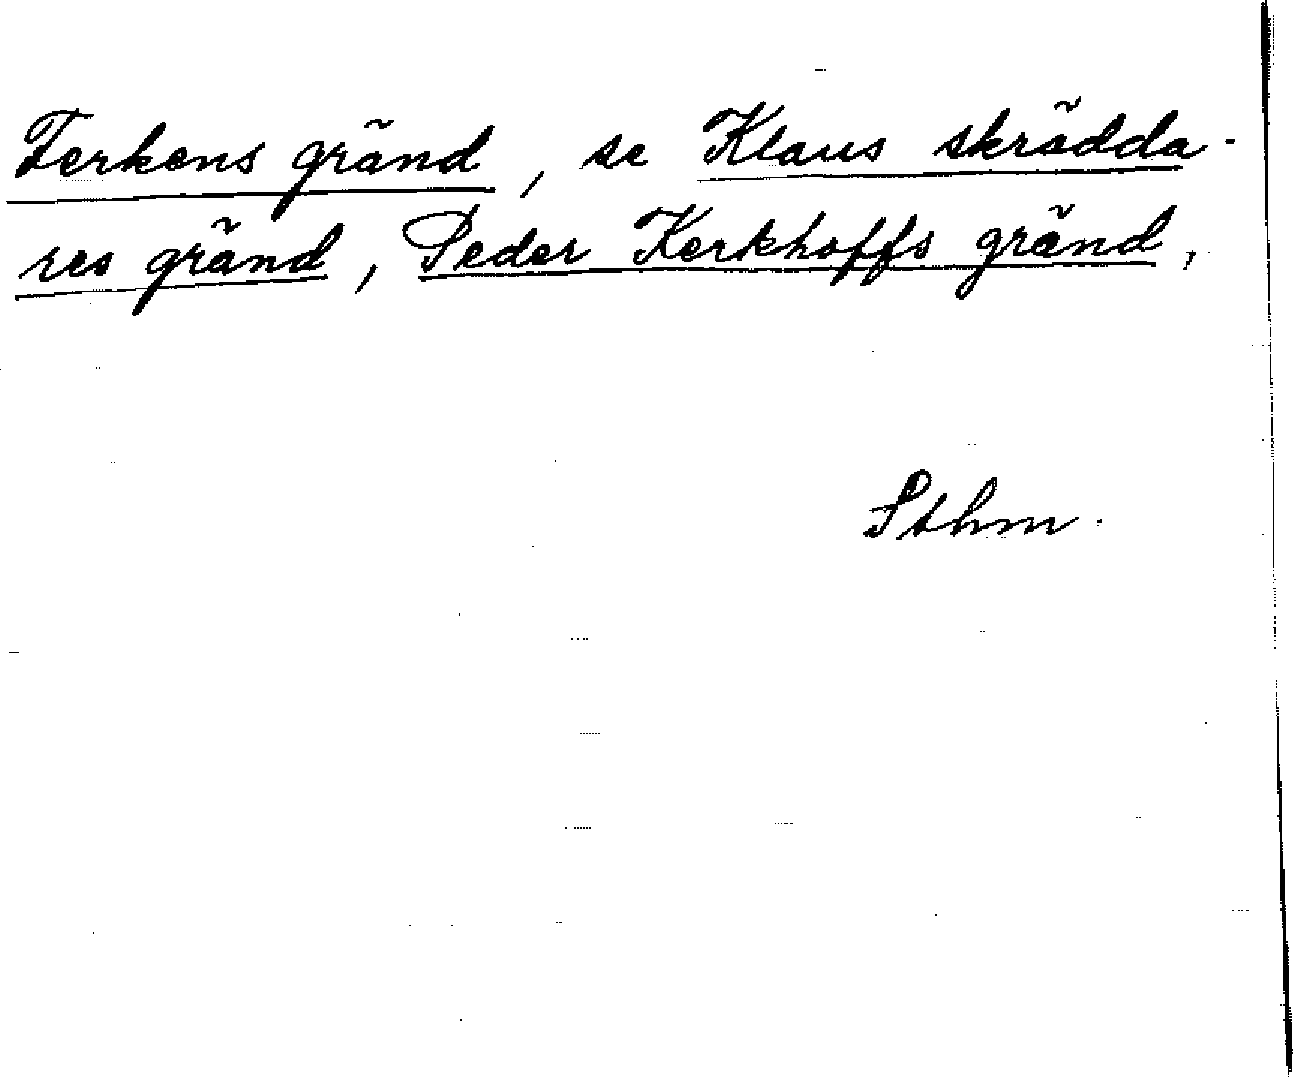 Ferkens gränd, se Klaus skrädda-
res gränd, Peder Kerkhoffs gränd,
Sthm.